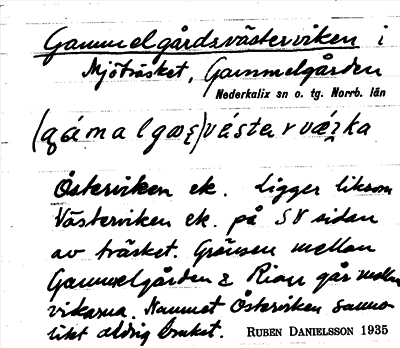 Gammelgårdsvästerviken i
Mjöträsket, Gammelgården
Nederkalix sn o. tg. Norrb. län
västerv
Österviken ek. Ligger liksom
Västerviken ek. på SV sidan
av träsket. Gränsen mellan
Gammelgården & Rian går mellan
vikarna. Namnet Österviken sanno-
likt aldrig brukat. RUBEN DANIELSSON 1935